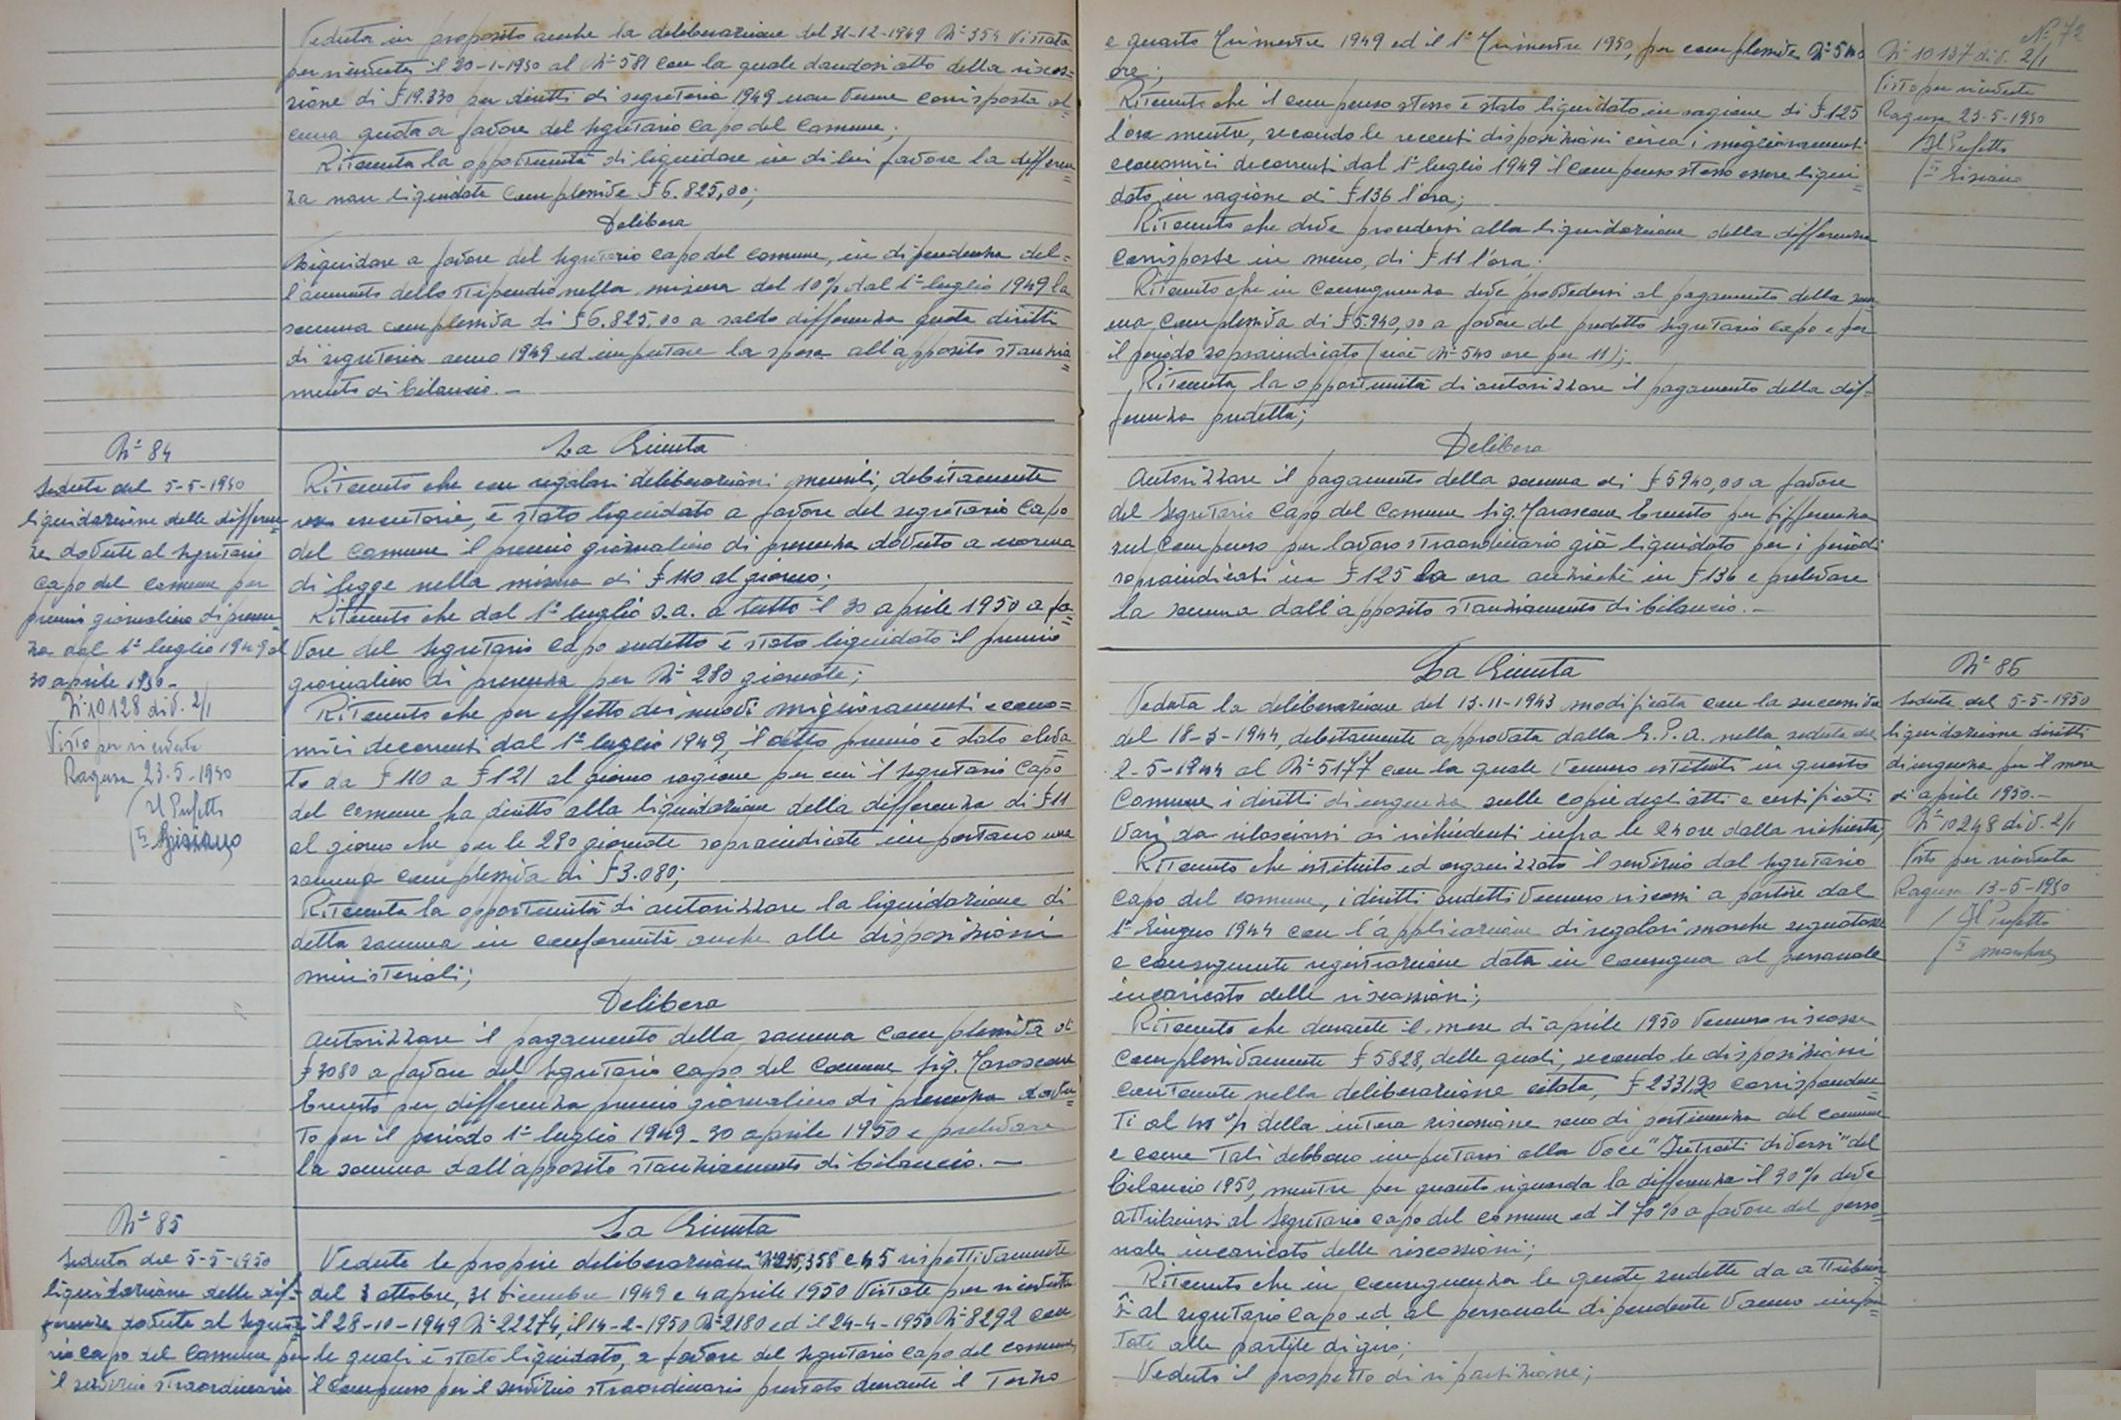 Veduta in proposito anche la deliberazione del 31-12-1949 N° 354 vistata
per ricevuta il 20-1-1950 al N° 581 con la quale dandosi atto della riscos=
sione di £ 19.330 per diritti di segreteria 1949 non venne corrisposta al
cuna quota a favore del segretario capo del Comune;
Ritenuta la opportunità di liquidare in di lui favore la differen=
za non liquidata complessive £ 6.825,00;
Delibera
Liquidare a favore del segretario capo del comune, in dipendenza del=
l'aumento dello stipendio nella misura del 10% dal 1° luglio 1949 la
somma complessiva di £ 6.825,00 a saldo differenza quota diritti
di segreteria anno 1949 ed imputare la spesa all'apposito stanzia=
mento di bilancio. -
N° 84
Seduta del 5-5-1950
liquidazione delle differen=
ze dovute al segretario
capo del comune per
premio giornaliero di presen=
za dal 1° luglio 1949 al
30 aprile 1950-
N° 10128 div. 2/1
Visto per ricevuta
Ragusa 23-5-1950
Il Prefetto
La Giunta
Ritenuto che con regolari deliberazioni mensili, debitamente
rese esecutorie, è stato liquidato a favore del segretario capo
del comune il premio giornaliero di presenza dovuto a norma
di legge nella misura di £ 110 al giorno;
Ritenuto che dal 1° luglio s.a. a tutto il 30 aprile 1950 a fa=
vore del segretario capo sudetto è stato liquidato il premio
giornaliero di presenza per N° 280 giornate;
Ritenuto che per effetto dei nuovi miglioramenti econo=
mici decorrenti dal 1° luglio 1949, il detto premio è stato eleva
to da £ 110 a £ 121 al giorno ragione per cui il segretario capo
del comune ha diritto alla liquidazione della differenza di £ 11
al giorno che per le 280 giornate sopraindicate importano una
somma complessiva di £ 3.080;
Ritenuta la opportunità di autorizzare la liquidazione di
detta somma in conformità anche alle disposizioni
ministeriali;
Delibera
Autorizzare il pagamento della somma complessiva di
£ 3080 a favore del segretario capo del Comune Sig. Tarascone
Ernesto per differenza premio giornaliero di presenza dovu=
to per il periodo 1° luglio 1949-30 aprile 1950 e prelevare
la somma dall'apposito stanziamento di bilancio. -
N° 85
Seduta del 5-5-1950
liquidazione delle dif=
ferenze dovute al segreta=
rio capo del Comune per
il servizio straordinario
La Giunta
Vedute le proprie deliberazioni N° 295, 358 e 45 rispettivamente
del 3 ottobre, 31 dicembre 1949 e 4 aprile 1950 vistate per ricevuta
il 28-10-1949 N° 22274, il 14-2-1950 N° 2180 ed il 24-4-1950 N° 8292 con
le quali è stato liquidato, a favore del segretario capo del comune,
il compenso per il servizio straordinario prestato durante il Terzo
N° 72
e quarto Trimestre 1949 ed il 1° Trimestre 1950, per complessive N° 540
ore;
Ritenuto che il compenso stesso è stato liquidato in ragione di £ 125
l'ora mentre, secondo le recenti disposizioni circa i miglioramenti
economici decorrenti dal 1° luglio 1949 il compenso stesso essere liqui=
dato in ragione di £ 136 l'ora;
Ritenuto che deve procedersi alla liquidazione della differenza
corrisposta in meno, di £ 11 l'ora.
Ritenuto che in conseguenza deve provvedersi al pagamento della som
ma complessiva di £ 5.940,00 a favore del predetto segretario capo e per
il periodo sopraindicato (cioè N° 540 ore per 11);
Ritenuta la opportunità di autorizzare il pagamento della dif=
ferenza predetta;
Delibera
Autorizzare il pagamento della somma di £ 5940,00 a favore
del Segretario Capo del Comune Sig. Tarascone Ernesto per differenza
sul compenso per lavoro straordinario già liquidato per i periodi
sopraindicati in £ 125 la ora anzicchè in £ 136 e prelevare
la somma dall'apposito stanziamento di bilancio. -
N° 10137 div. 2/1
Visto per ricevuta
Ragusa 23-5-1950
Il Prefetto
La Giunta
Veduta la deliberazione del 13-11-1943 modificata con la successiva
del 18-3-1944, debitamente approvata dalla G.P.A. nella seduta del
2-5-1944 al N° 5177 con la quale vennero istituiti in questo
Comune i diritti di urgenza sulle copie degli atti e certificati
vari da rilasciarsi ai richiedenti infra le 24 ore dalla richiesta;
Ritenuto che istituito ed organizzato il servizio dal segretario
capo del comune, i diritti sudetti vennero riscossi a partire dal
1° Giugno 1944 con l'applicazione di regolari marche segnatasse
e conseguente registrazione data in consegna al personale
incaricato delle riscossioni;
Ritenuto che durante il mese di aprile 1950 vennero riscosse
complessivamente £ 5828, delle quali, secondo le disposizioni
contenute nella deliberazione citata, £ 2331,20 corrisponden=
ti al 40% della intera riscossione sono di pertinenza del comune
e come tali debbono imputarsi alla voce "Introiti diversi" del
bilancio 1950, mentre per quanto riguarda la differenza il 30% deve
attribuirsi al Segretario capo del comune ed il 70% a favore del perso=
nale incaricato delle riscossioni;
Ritenuto che in conseguenza le quote sudette da attribuir=
si al segretario capo ed al personale dipendente vanno impu=
tate alle partite di giro;
Veduto il prospetto di ripartizione;
N° 86
Seduta del 5-5-1950
liquidazione diritti
di urgenza per il mese
di aprile 1950.-
N° 10248 div. 2/1
Visto per ricevuta
Ragusa 13-5-1950
Il Prefetto